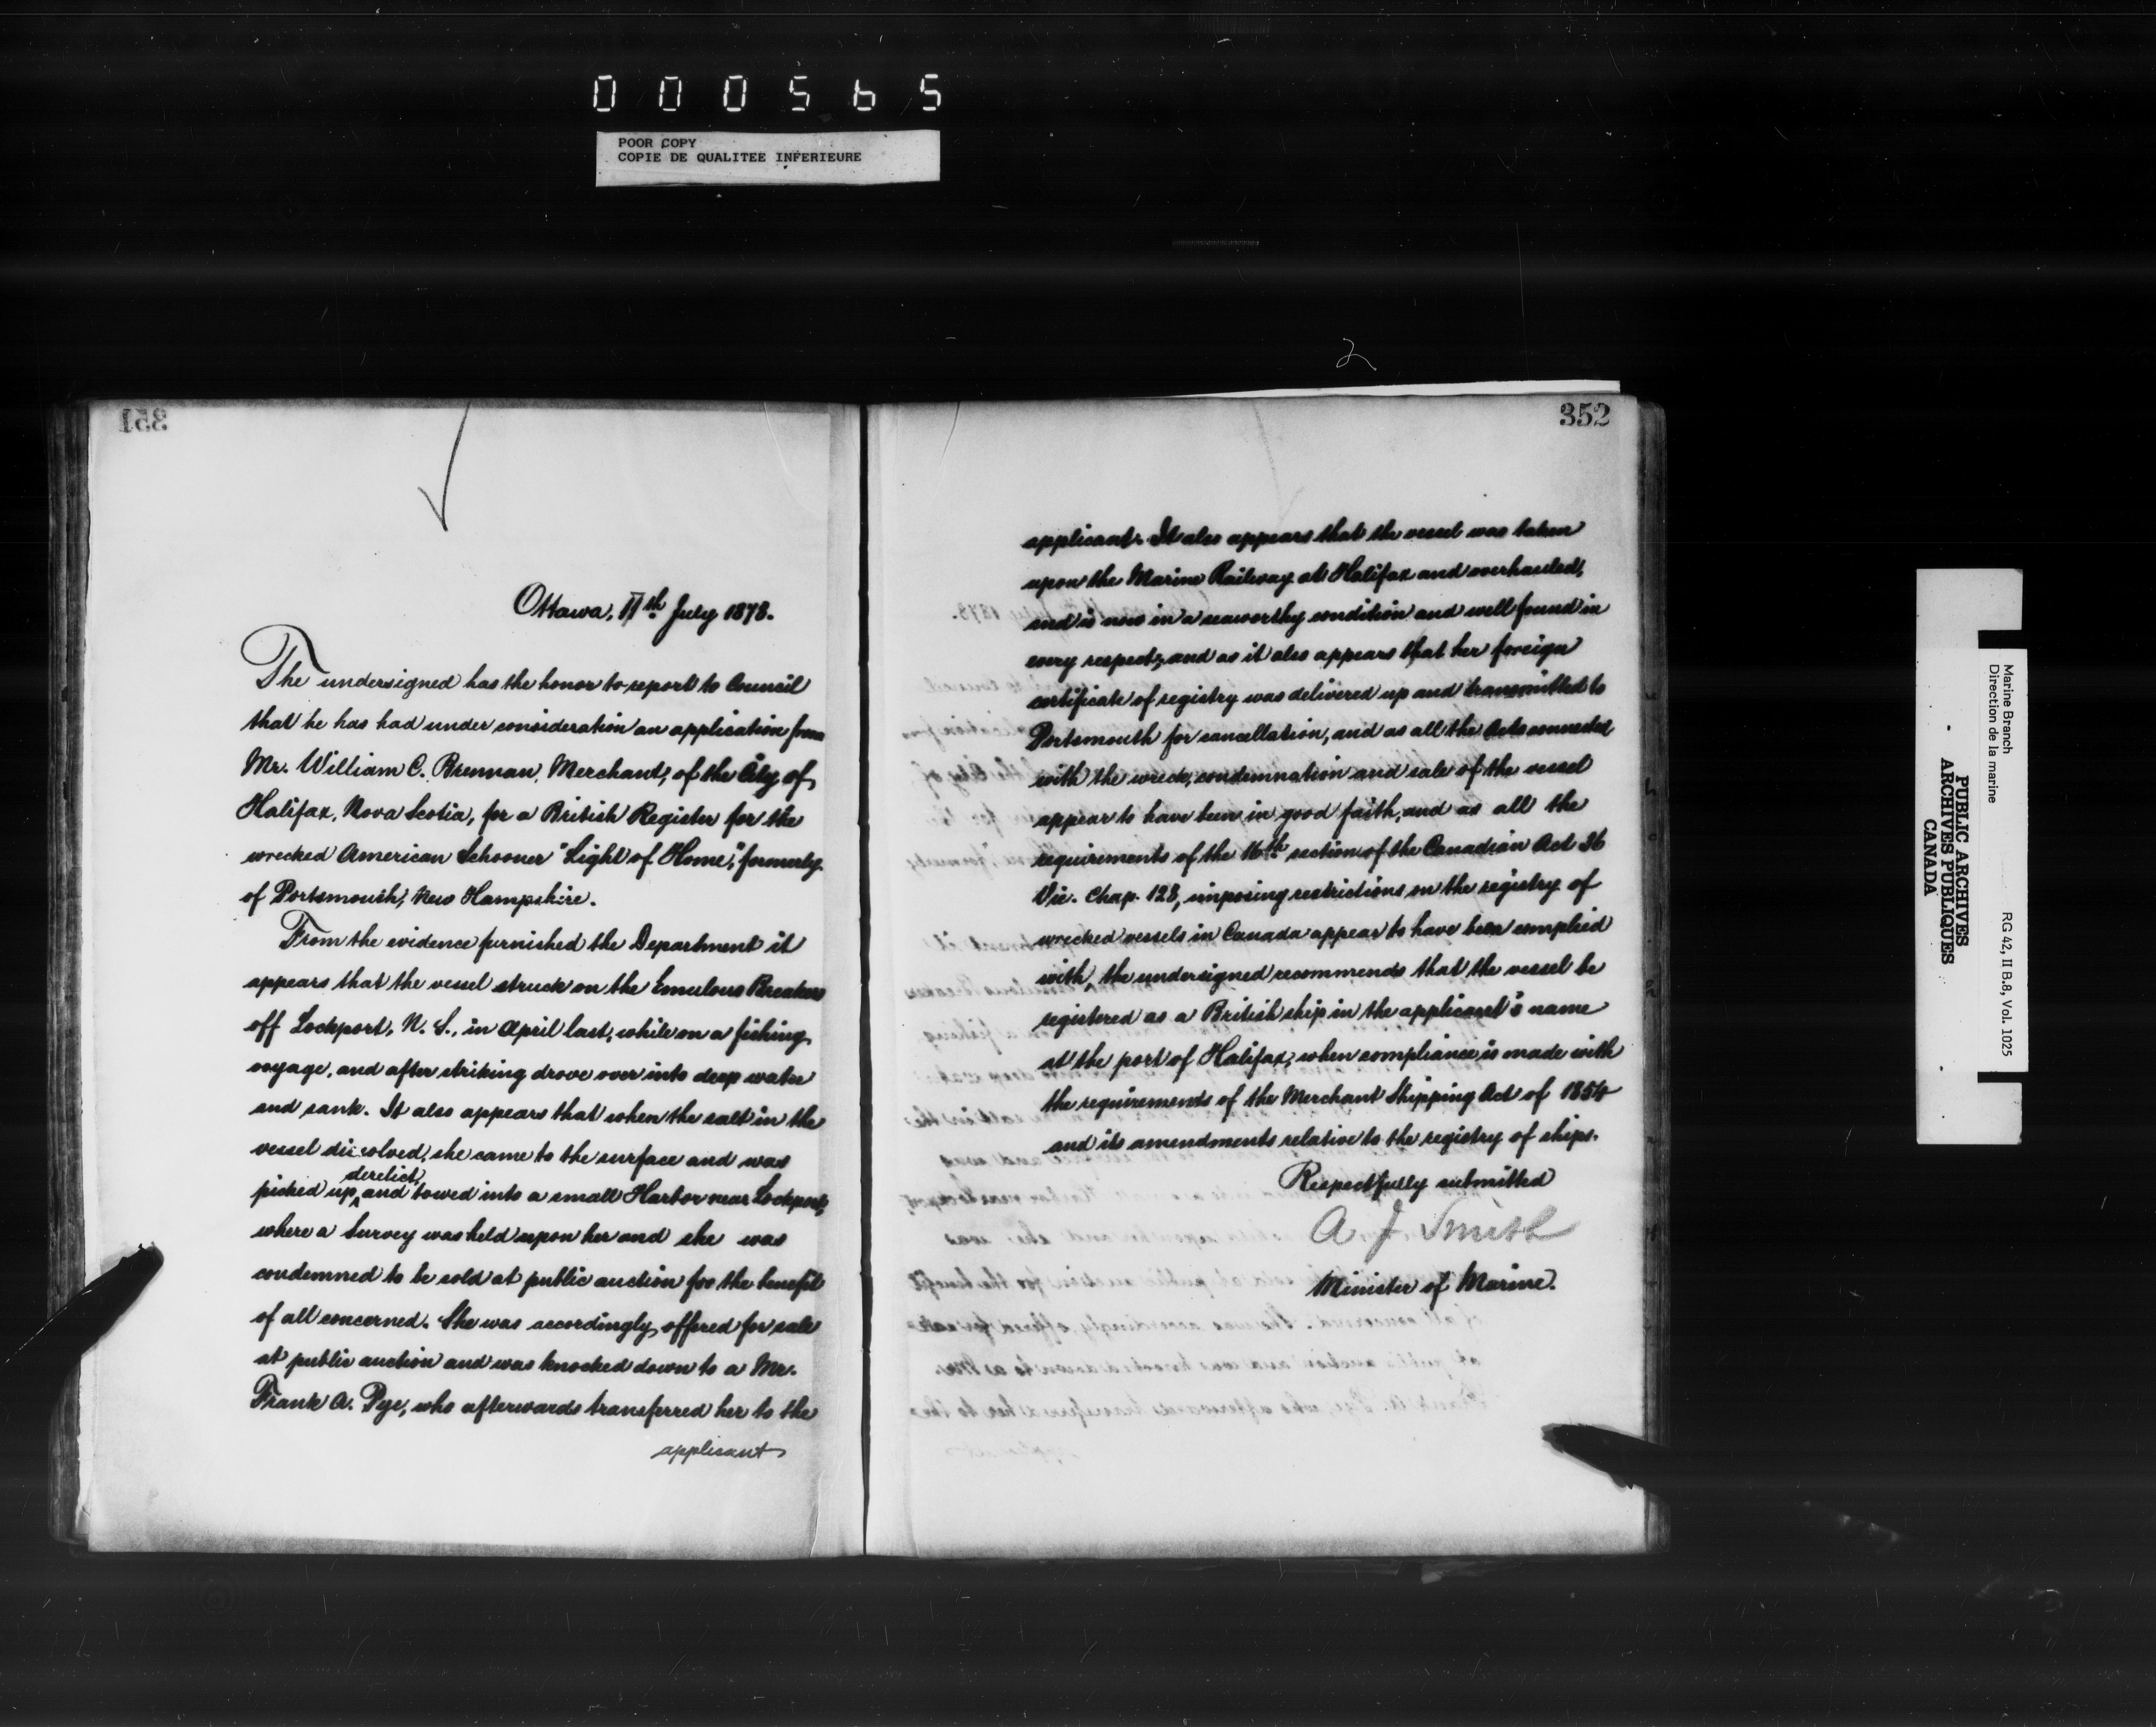 000565
POOR COPY
COPIE DE QUALITEE INFERIEURE
2
351
Ottawa, 11th July 1878.
The undersigned has the honor to report to Council
that he has had under consideration an application from
Mr. William C. Brennan, Merchant, of the City of
Halifax, Nova Scotia, for a British Register for the
wrecked American Schooner "Light of Home", formerly
of Portsmouth, New Hampshire.
From the evidence furnished the Department it
appears that the vessel struck on the Emulous Breakers
off Lockport, N. S., in April last, while on a fishing
voyage, and after striking drove over into deep water
and sank. It also appears that when the salt in the
vessel dissolved, she came to the surface and was
picked up derelict, and towed into a small Harbor near Lockport,
where a Survey was held upon her and she was
condemned to be sold at public auction for the benefit
of all concerned. She was accordingly offered for sale
at public auction and was knocked down to a Mr.
Frank A. Pye, who afterwards transferred her to the
applicant
352
applicant. It also appears that the vessel was taken
upon the Marine Railway at Halifax and overhauled,
and is now in a seaworthy condition and well found in
every respect, and as it also appears that her foreign
certificate of registry was delivered up and transmitted to
Portsmouth for cancellation, and as all the Acts connected
with the wreck, condemnation and sale of the vessel
appear to have been in good faith, and as all the
requirements of the 16th section of the Canadian Act 36
Vic. Chap. 128, imposing restrictions on the registry of
wrecked vessels in Canada appear to have been complied
with, the undersigned recommends that the vessel be
registered as a British ship in the applicant's name
at the port of Halifax, when compliance is made with
the requirements of the Merchant Shipping Act of 1854
and its amendments relative to the registry of ships.
Respectfully submitted
A J Smith
Minister of Marine.
Marine Branch
Direction de la marine
RG 42, II B.8, Vol. 1025
PUBLIC ARCHIVES
ARCHIVES PUBLIQUES
CANADA